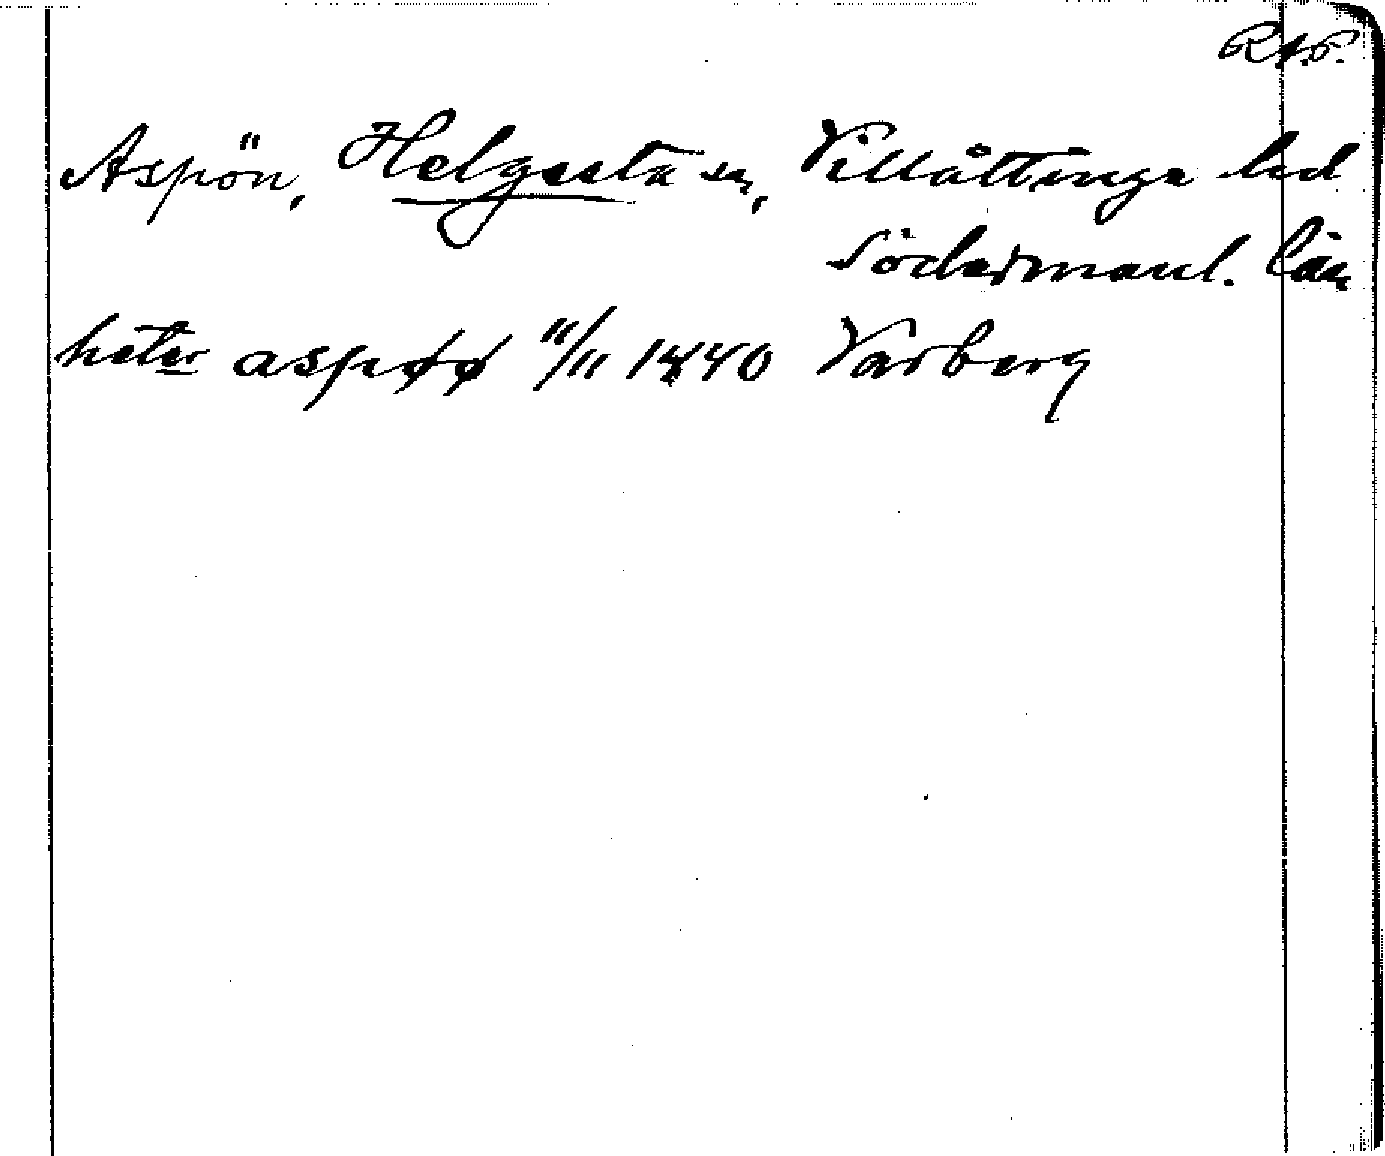 R.A.P.
Aspön, Helgesta sn, Villåttinge hd
Södermanl. län
heter aspøø 11/11 1440 Varberg